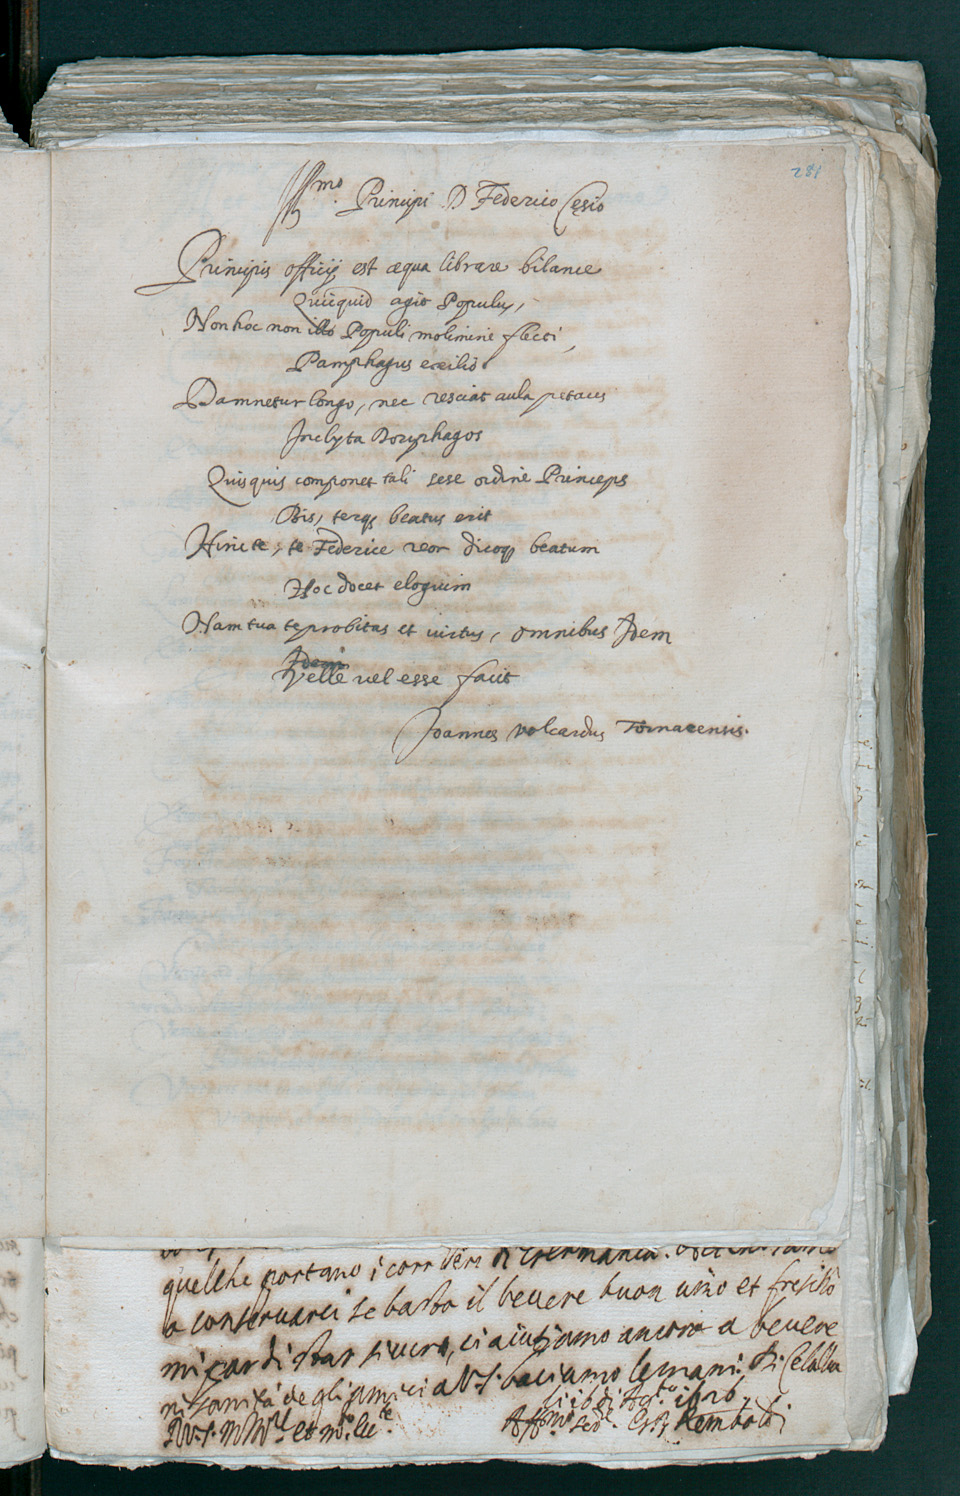 281
Ill.mo Principi D Federico Cęsio
Principis officij est æqua librare bilance
Quicquid agit Populus,
Non hoc non illo Populi molimine flecti,
Pamphagus exilio
Damnetur longo, nec resciat aula petaces
Inclyta Doryphagos
Quisquis componet tali sese ordine Princeps
Bis, terq; beatus erit
Hinc te, te Federice reor dicoq; beatum
Hoc docet eloquium
Nam tua te probitas et virtus, omnibus Idem
Idem
Velle vel esse facit
Joannes Volcardus Tornacensis.
quelche portano i corrieri di Germania.
a conservarci se basta il bevere buon vino et freschō
mi par di star sicuro, ci aiutiamo ancora a bevere
in sanità degli amici a V.S. baciamo le mani. Di
li ib di Ag.to 1616
Aff.mo Ser.